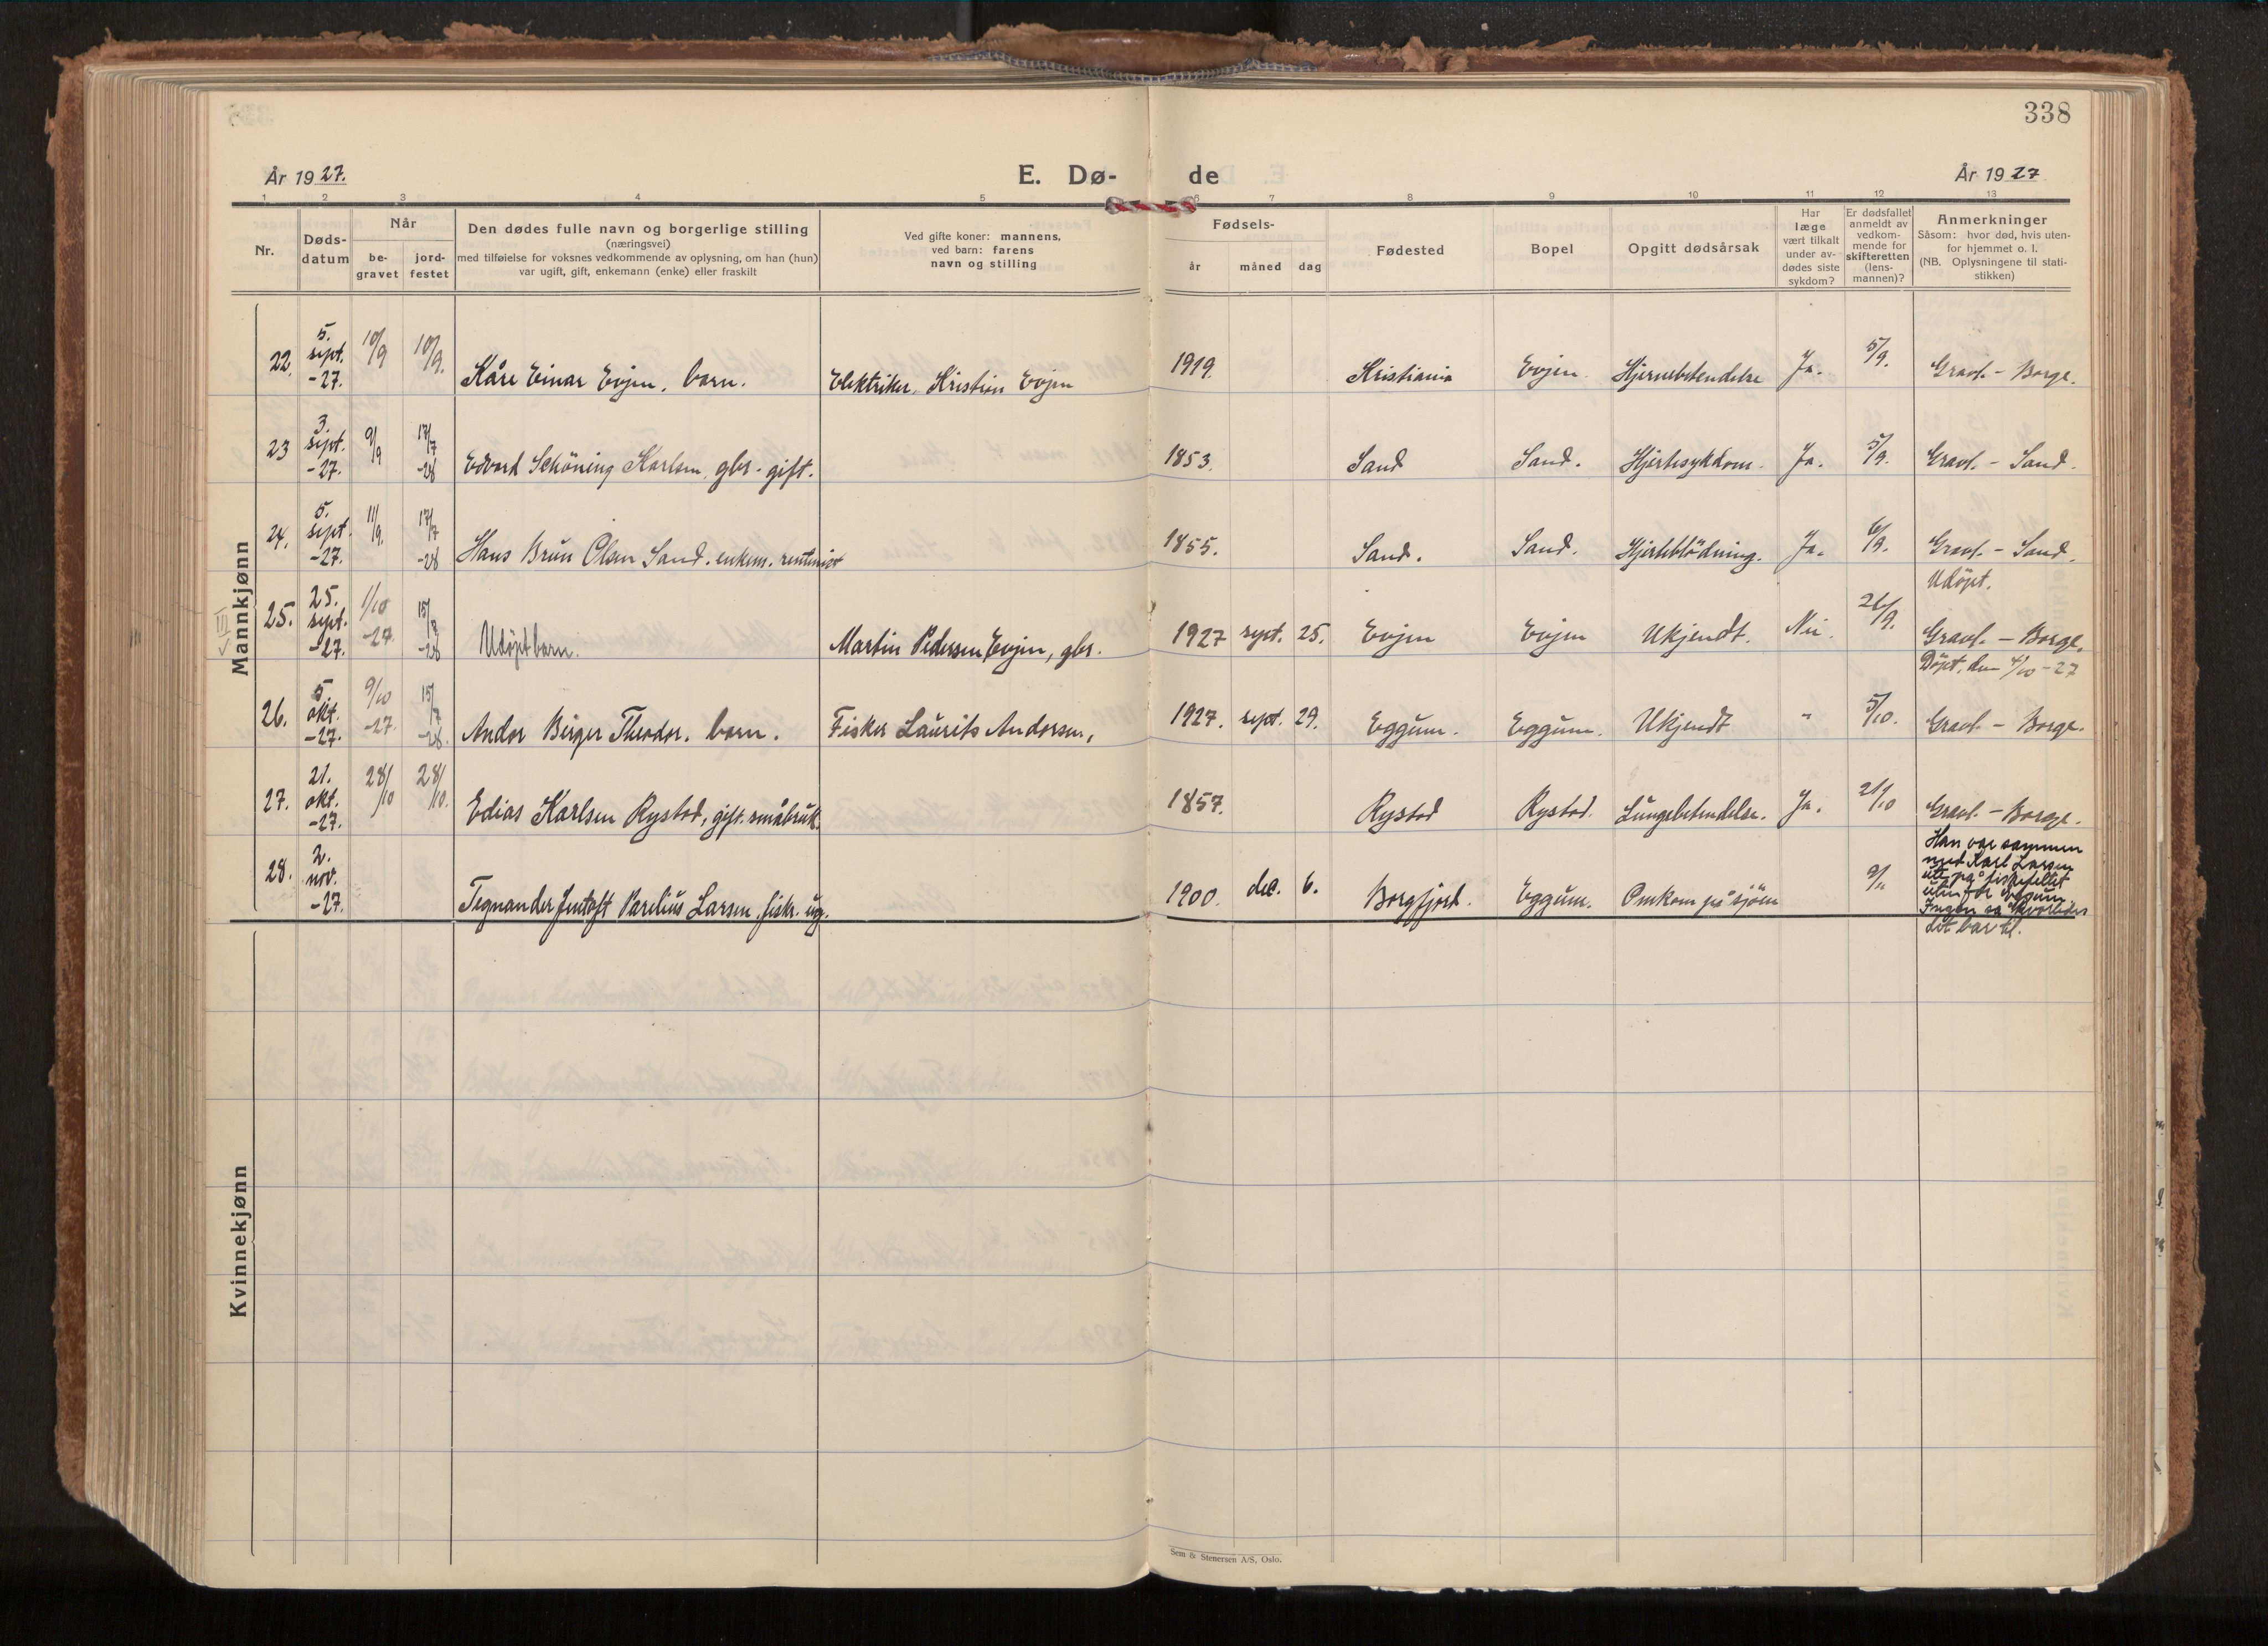 338
År 1927.
E. Dø-
de
År 1927
1 2 3 4 5 6 7 8 9 10 11 12 13
Nr.
Døds-
datum
Når
be-
gravet
jord-
festet
Den dødes fulle navn og borgerlige stilling
(næringsvei)
med tilføielse for voksnes vedkommende av oplysning, om han (hun)
var ugift, gift, enkemann (enke) eller fraskilt
Ved gifte koner: mannens,
ved barn: farens
navn og stilling
Fødsels-
år måned dag
Fødested
Bopel
Opgitt dødsårsak
Har
læge
vært tilkalt
under av-
dødes siste
sykdom?
Er dødsfallet
anmeldt av
vedkom-
mende for
skifteretten
(lens-
mannen)?
Anmerkninger
Såsom: hvor død, hvis uten-
for hjemmet o. l.
(NB. Oplysningene til stati-
stikken)
Mannkjønn
22. 5. sept. -27. 10/9 10/9. Kåre Einar Evjen, barn. Elektriker, Kristian Evjen 1919. Kristiania Evjen Hjernebetendelse Ja. 5/9. Gravl. - Borge.
23 3. sept. -27. 9/9 17/7 -28 Edvard Schöning Karlsen, gbr. gift. 1853. Sand Sand. Hjertesykdom. Ja. 5/9. Gravl. - Sand.
24. 5. sept. -27. 11/9. 17/7 -28 Hans Brun Olsen Sand. enkem. rentenist 1855. Sand. Sand. Hjerteblödning. Ja. 6/9. Gravl. - Sand.
Udöpt.
25. 25. sept. -27. 1/10 -27. 15/7 -28 Udöpt barn. Martin Pedersen Evjen, gbr. 1927 sept. 25. Evjen Evjen Ukjendt. Nei. 26/9. Gravl. - Borge.
Döpt. den 4/10 - 27
26. 5. okt. -27. 9/10 -27. 15/7 -28. Andor Birger Theodor. barn. Fisker Laurits Andersen, 1927. sept. 29. Eggum. Eggum. Ukjendt " 5/10. Gravl. - Borge.
27. 21. okt. -27. 28/10 28/10. Edias Karlsen Rystad, gift. småbruk. 1857. Rystad Rystad. Lungebetendelse. Ja. 21/10 Gravl. - Borge.
28. 2. nov. -27. Tegnander Jentoft Parelius Larsen, fisker. ug. 1900. dec. 6. Borgfjord. Eggum. Omkom på sjöen 9/11
Han var sammen
med Karl Larsen
ute på fiskefeltet
uten for Eggum
Ingen så hvorledes
det bar til.
Kvinnekjønn
Sem & Stenersen A/S, Oslo.